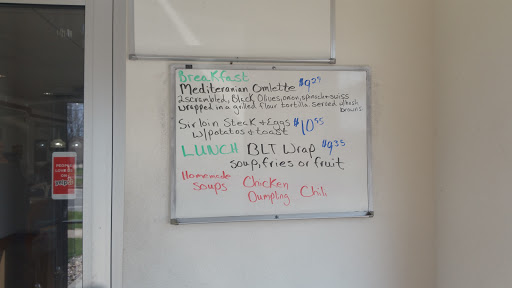 Breakfast
Mediteranian Omlette $9.29
2 scrambled, Black Olives, onion, spinach & suiss
wrapped in a grilled flour tortilla served w/hash
browns
Sirloin Steak & Eggs $10.55
w/potatos & toast
LUNCH BLT Wrap $9.35
soup, fries or fruit
Homemade
soups
Chicken
Dumpling
Chili